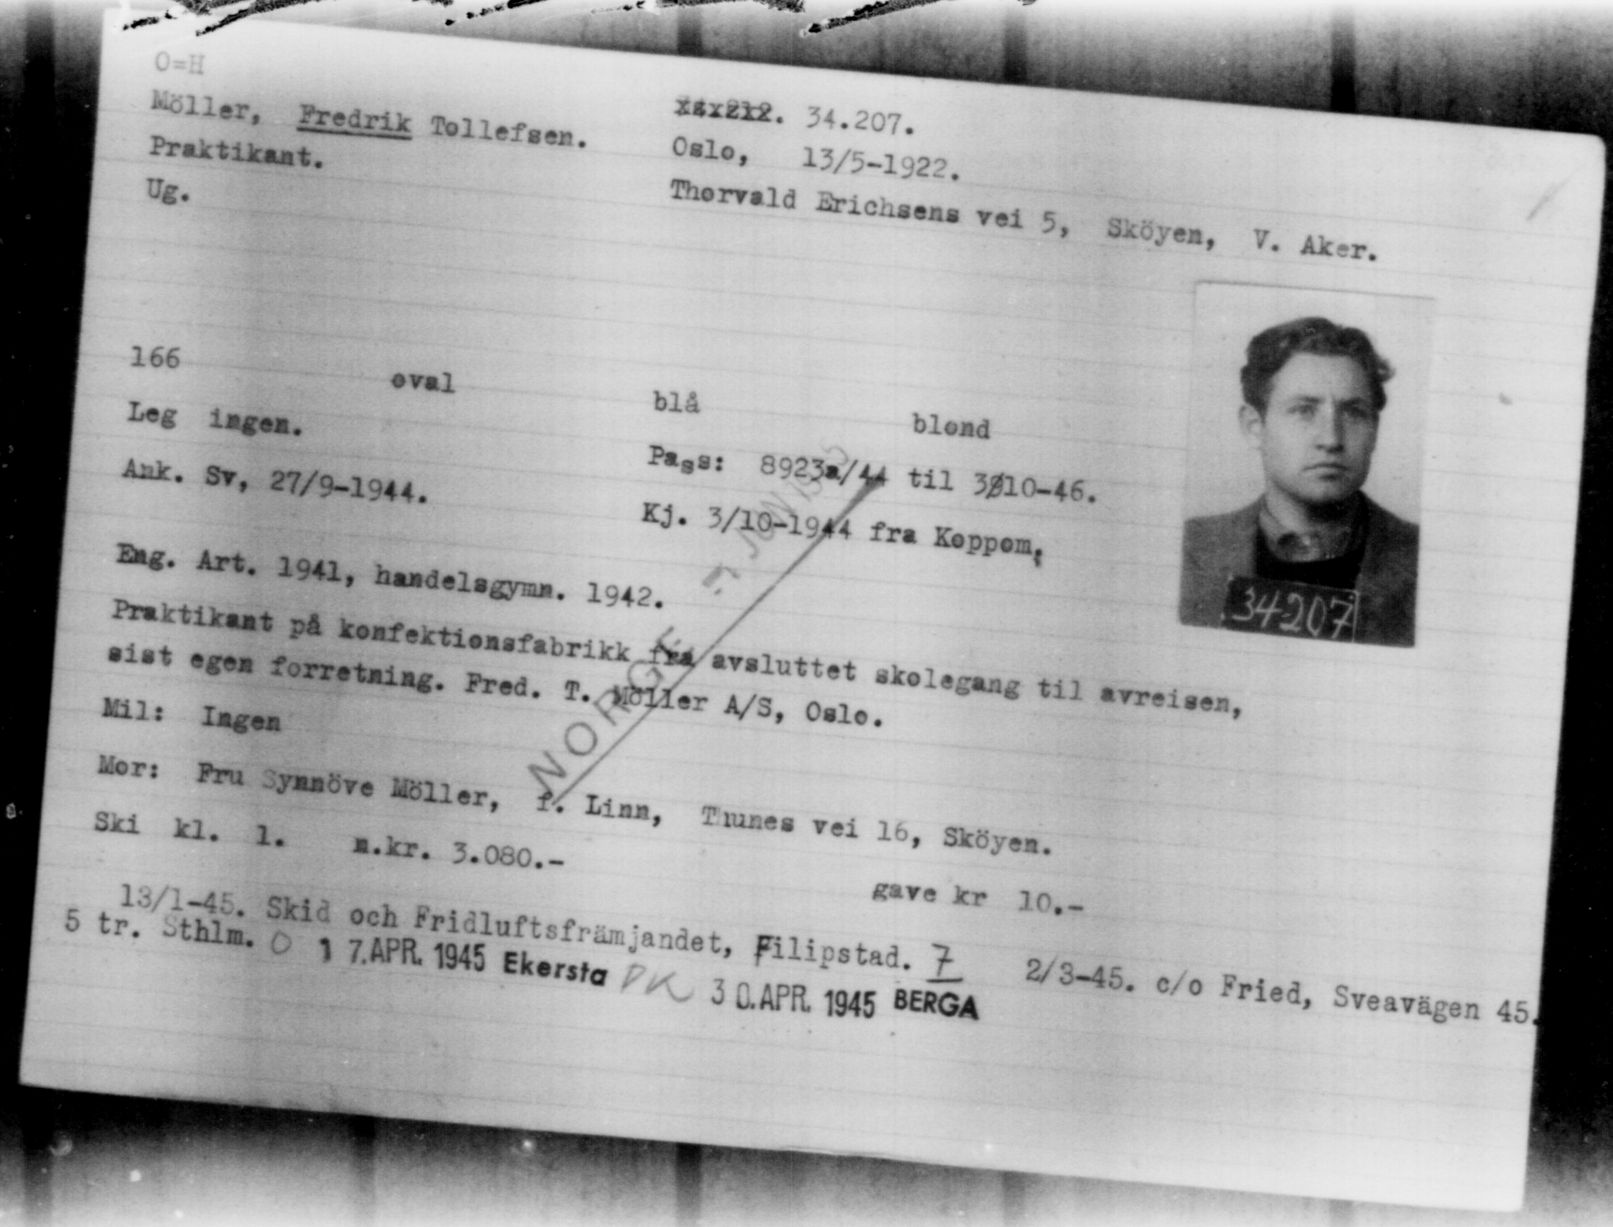 O=H
Möller, Fredrik Tollefsen. 34.207.
Praktikant. Oslo, 13/5-1922.
Ug. Thorvald Erichsens vei 5, Sköyen, V. Aker.
166 oval blå blond
Leg ingen. Pass: 8923a/44 til 3/10-46.
Ank. Sv, 27/9-1944. Kj. 3/10-1944 fra Koppom.
Eng. Art. 1941, handelsgymn. 1942.
Praktikant på konfektionsfabrikk fra avsluttet skolegang til avreisen,
sist egen forretning. Fred. T. Möller A/S, Oslo.
Mil: Ingen
NORGE
Mor: Fru Synnöve Möller, f. Linn, Thunes vei 16, Sköyen.
Ski kl. 1. n.kr. 3.080.- gave kr 10.-
13/1-45. Skid och Fridluftsfrämjandet, Filipstad. 7 2/3-45. c/o Fried, Sveavägen 45.
5 tr. Sthlm. O 17.APR. 1945 Ekersta 30.APR. 1945 BERGA
34207